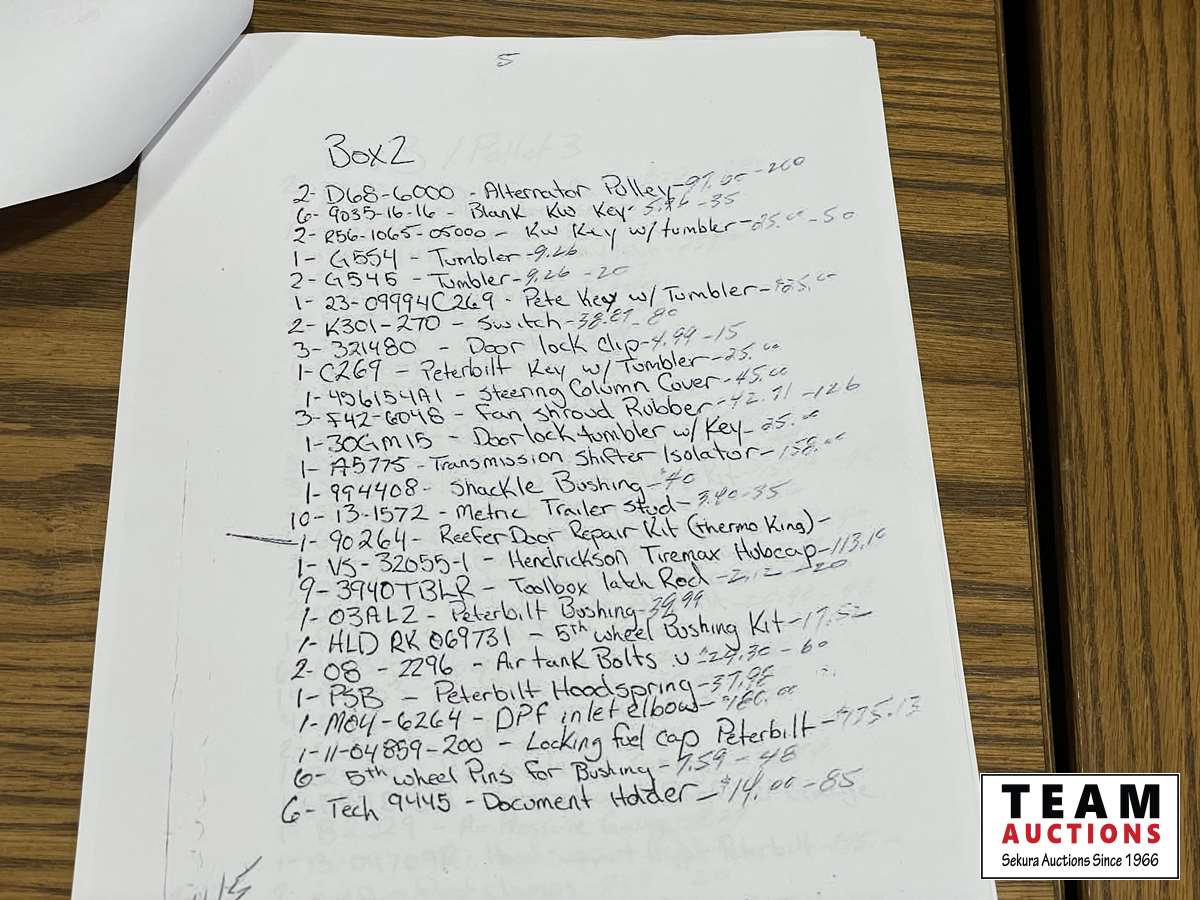 5
Box 2
2- D68-6000 - Alternator Pulley - 97.00 - 200
6- 9035-16-16 - Blank KW Key - 5.96 - 35
2- R56-1065-05000 - KW Key w/ tumbler - 25.00 - 50
1- G554 - Tumbler - 9.26
2- G545 - Tumbler - 9.26 - 20
1- 23-09994C269 - Pete Key w/ Tumbler - $25.00
2- K301-270 - Switch - 38.87 - 80
3- 321480 - Door lock clip - 4.99 - 15
1- C269 - Peterbilt Key w/ Tumbler - 25.00
1- 456154A1 - Steering Column Cover - 45.00
3- F42-6048 - Fan Shroud Rubber - 42.71 - 126
1- 30GM15 - Door lock tumbler w/ Key - 25.00
1- A5775 - Transmission Shifter Isolator - 158.00
1- 994408 - Shackle Bushing - $40
10- 13-1572 - Metric Trailer Stud - 3.40 - 35
1- 90264 - Reefer Door Repair Kit (thermo King) -
1- VS-32055-1 - Hendrickson Tiremax Hubcap - 113.10
9- 3940TBLR - Toolbox latch Rod - 2.12 - 20
1- 03ALZ - Peterbilt Bushing - 39.99
1- HLD RK 069731 - 5th wheel Bushing Kit - 17.52
2- 08 - 2296 - Air tank Bolts U - $29.30 - 60
1- PSB - Peterbilt Hoodspring - 37.98
1- M04-6264 - DPF inlet elbow - $160.00
1- 11-04859-200 - Locking fuel cap Peterbilt - $175.13
6- 5th wheel Pins for Bushing - 7.59 - 48
6- Tech 9445 - Document Holder - $14.00 - 85
TEAM
AUCTIONS
Sekura Auctions Since 1966